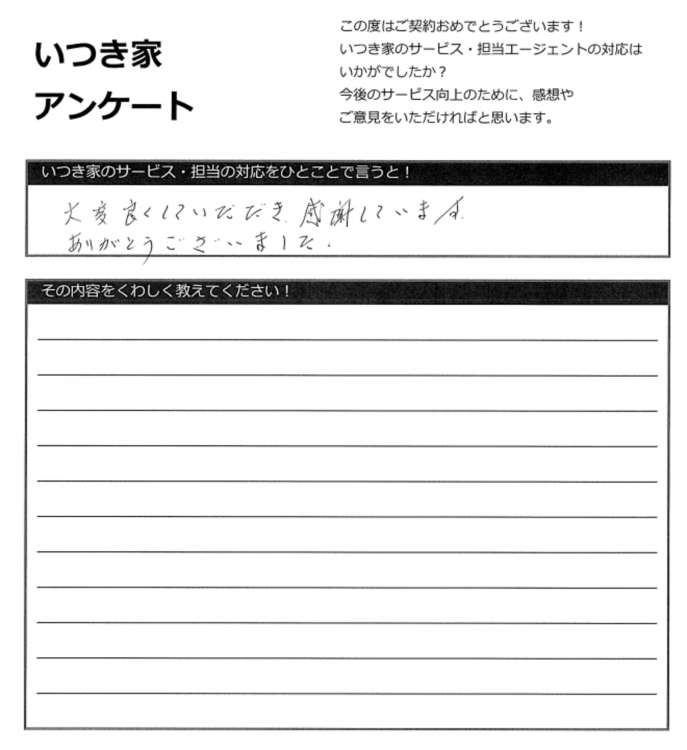 いつき家
アンケート
この度はご契約おめでとうございます！
いつき家のサービス・担当エージェントの対応は
いかがでしたか？
今後のサービス向上のために、感想や
ご意見をいただければと思います。
いつき家のサービス・担当の対応をひとことで言うと！
大変良くしていただき、感謝しています。
ありがとうございました。
その内容をくわしく教えてください！